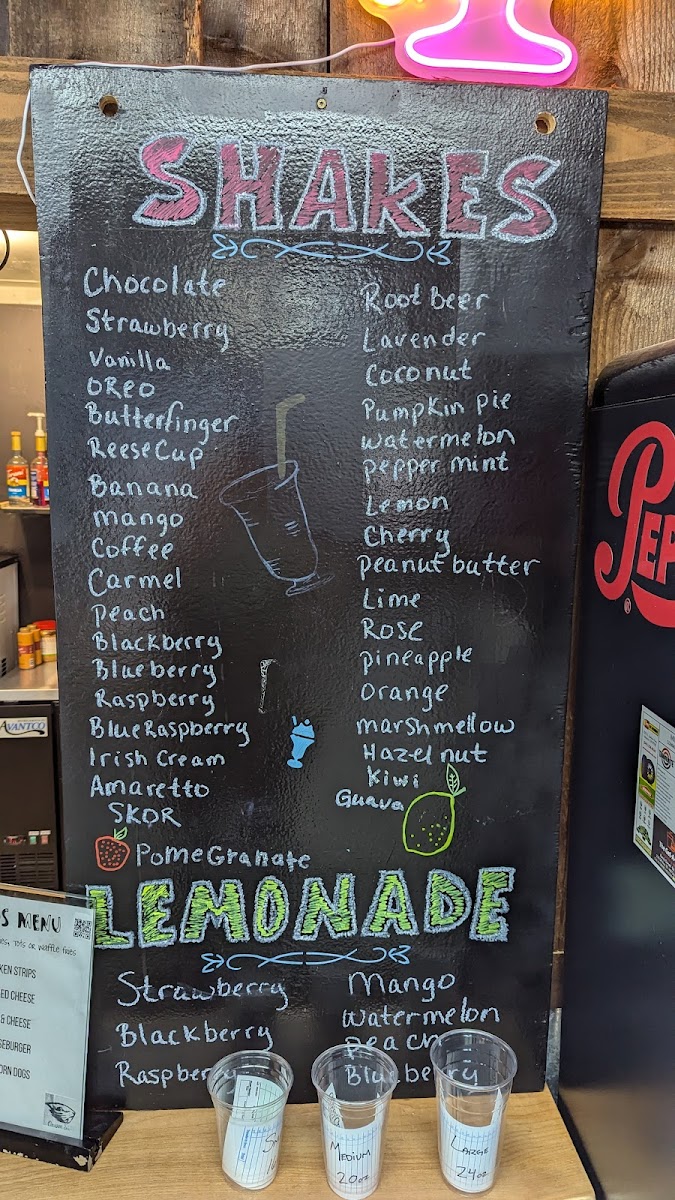 SHAKES
Chocolate
Strawberry
Vanilla
OREO
Butterfinger
ReeseCup
Banana
mango
Coffee
Carmel
peach
Blackberry
Blueberry
Raspberry
BlueRaspberry
Irish Cream
Amaretto
SKOR
PomeGranate
Root beer
Lavender
Coconut
Pumpkin pie
watermelon
pepper mint
Lemon
Cherry
peanut butter
Lime
Rose
pineapple
orange
marshmellow
Hazel nut
Kiwi
Guava
LEMONADE
Strawberry
Blackberry
Raspberry
Mango
watermelon
peach
Blueberry
MEDIUM
20oz
LARGE
24oz
S MENU
TOTS OR WAFFLE FRIES
KEN STRIPS
ED CHEESE
& CHEESE
SEBURGER
ORN DOGS
AVANTCO
PEP